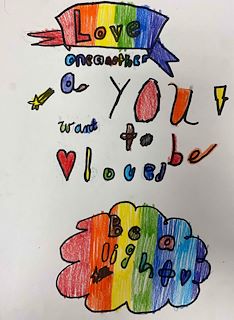 Love
one another
as you
want to be
loved
Be a
light